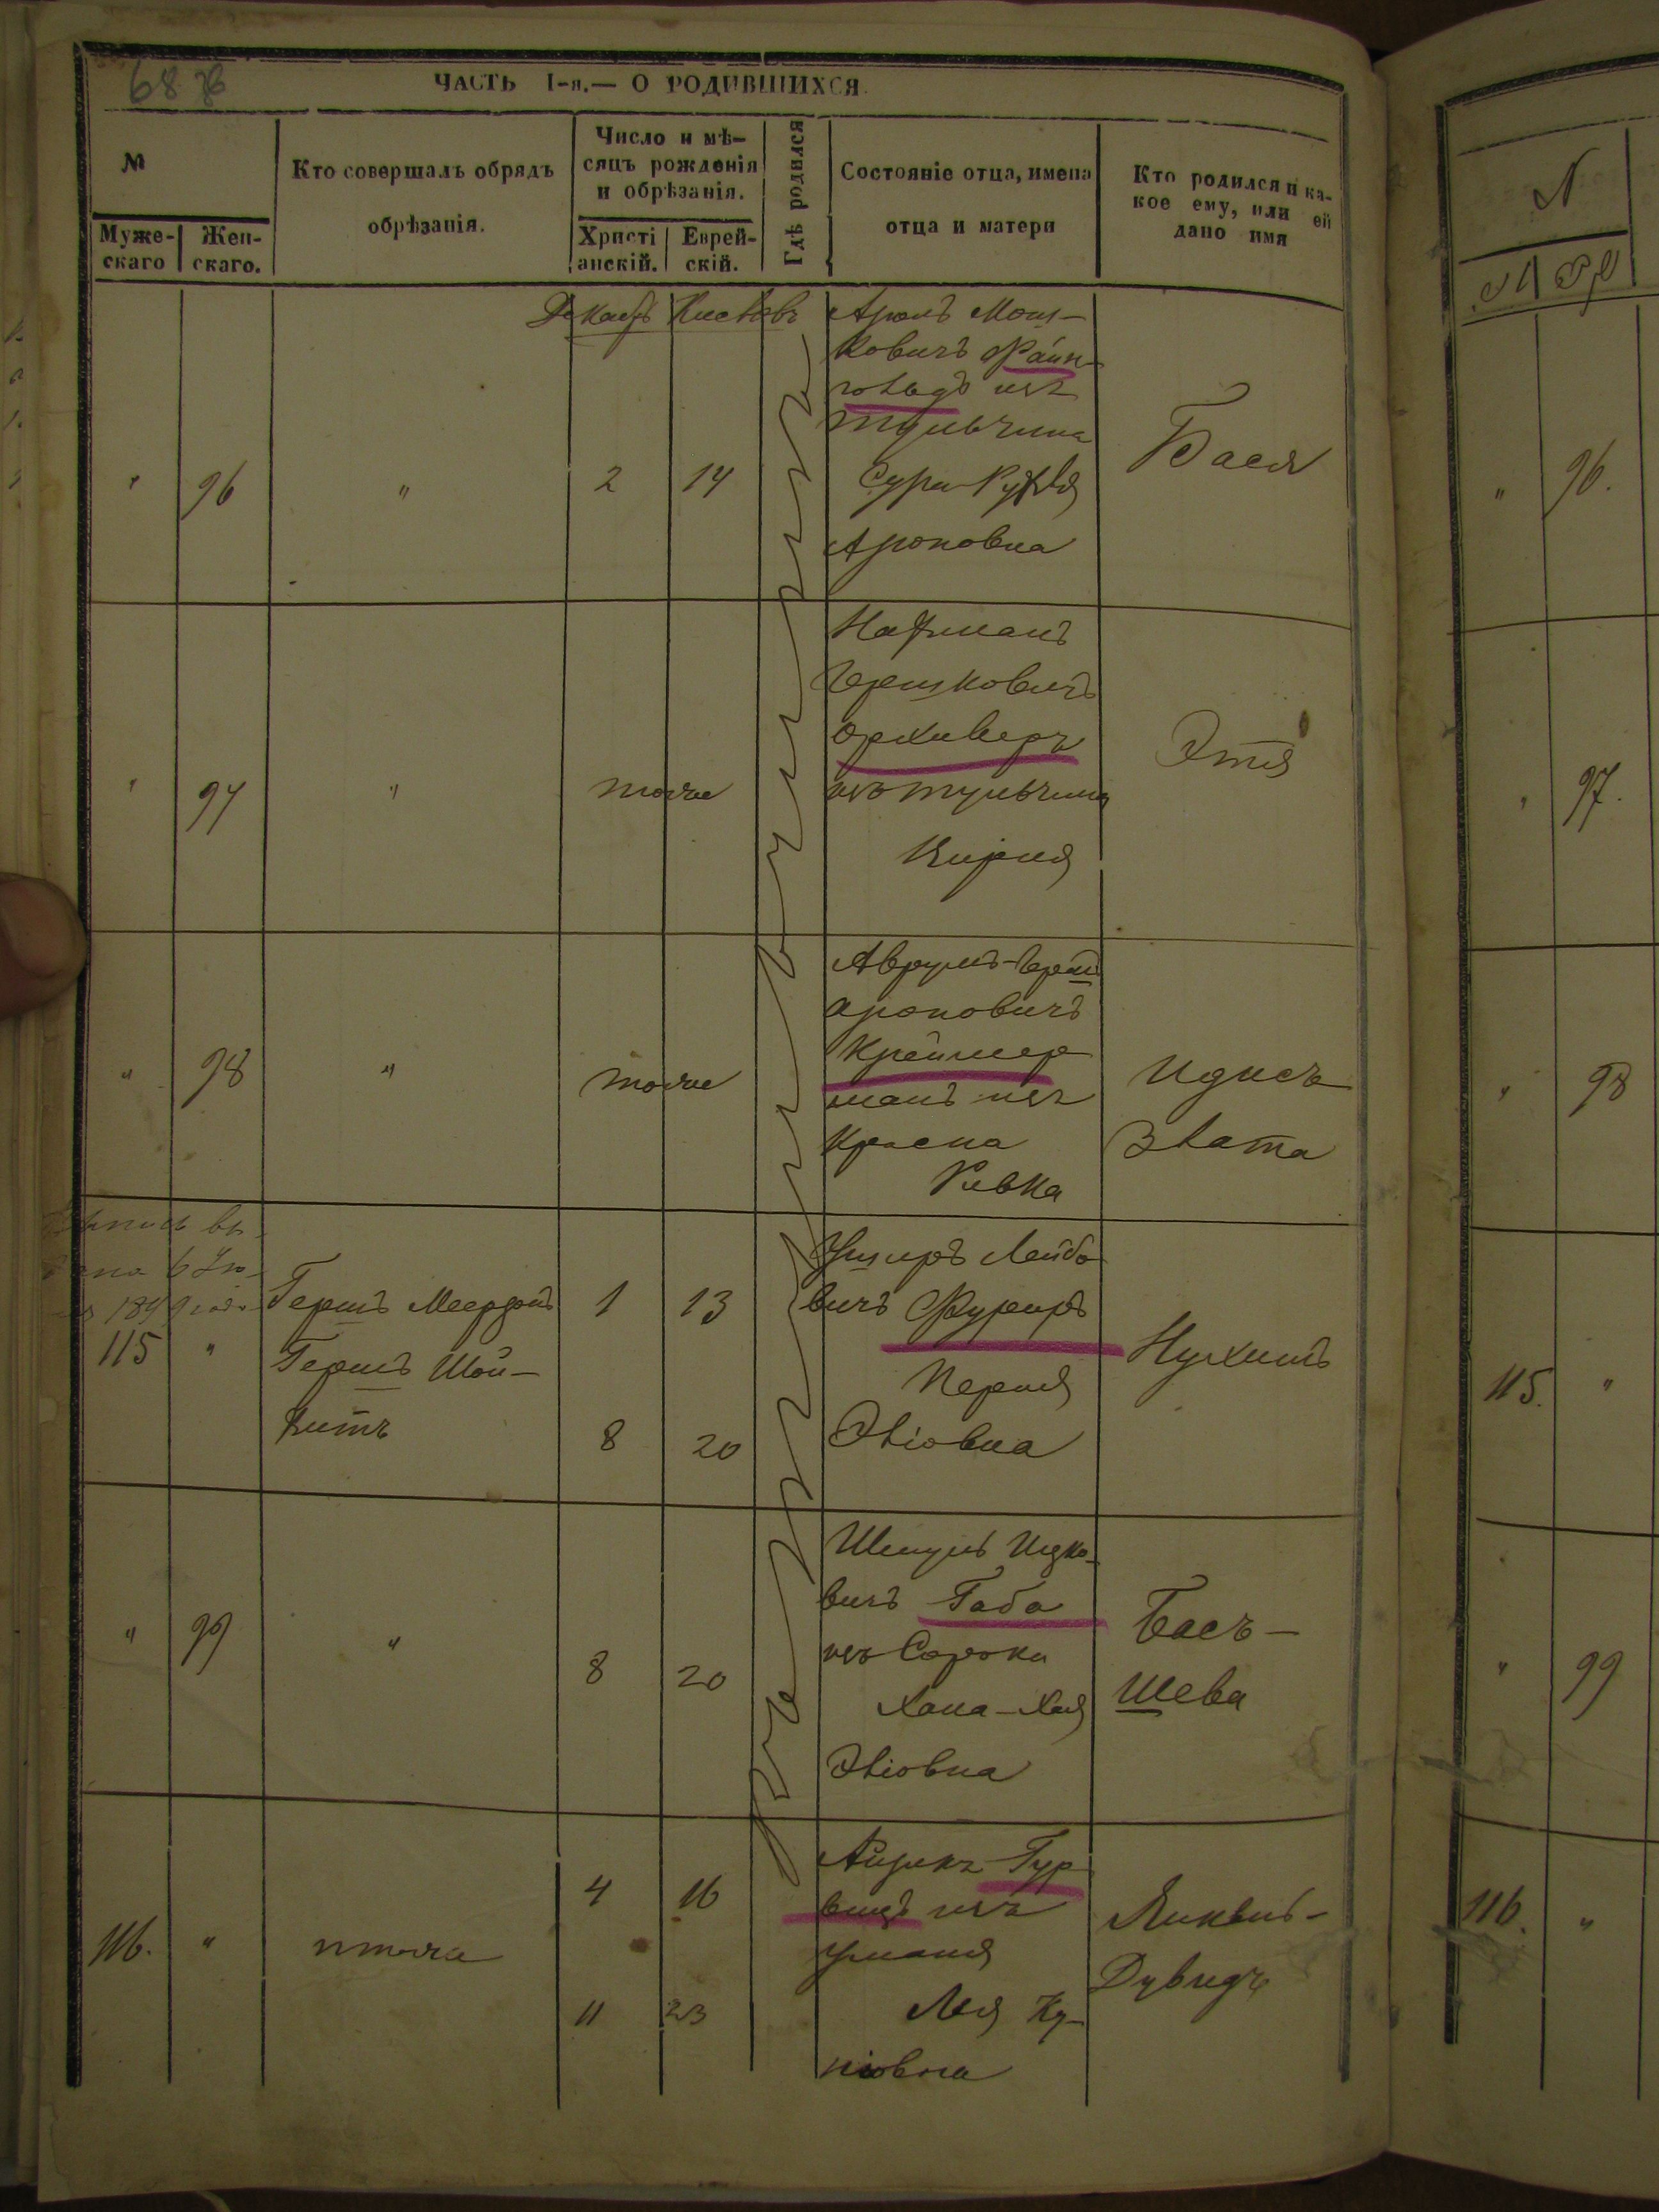 68
ЧАСТЬ I-я.— О РОДИВШИХСЯ.
№
Муже-
скаго
Жен-
скаго.
Кто совершалъ обрядъ
обрѣзанія.
Число и мѣ-
сяцъ рожденія
и обрѣзанія.
Христі
анскій.
Еврей-
скій.
Гдѣ родился
Состояніе отца, имена
отца и матери
Кто родился и ка-
кое ему, или ей
дано имя
Декабр Кислевъ
" 96 " 2 14
Аронъ Мош-
ковичъ Файн-
гольдъ изъ
Тульчина
Сура-Рухля
Ароновна
Бася
" 97 " тоже
Нахманъ
Гершковичъ
изъ Тульчина
Кирия
Этя
" 98 " тоже
Аврумъ-Герш
Ароновичъ
Креймер
манъ изъ
Красна
Ривка
Идисъ
Злата
6
115 "
Гершъ
Гершъ Шой-
хитъ
1 13
8 20
Ушеръ Лейбо
вичъ Фуреръ
Перля
Эліовна
Нухимъ
" 99 " 8 20
Шмуль Ицко-
вичъ Габа
изъ Сороки
Хана-Хая
Эліовна
Бась-
Шева
116. "
4 16
11 23
Айзикъ Гур
вицъ изъ
Уманя
Лея Ну-
хіовна
Янкель-
Дувидъ
№
" 96.
" 97.
" 98
115. "
" 99
116. "